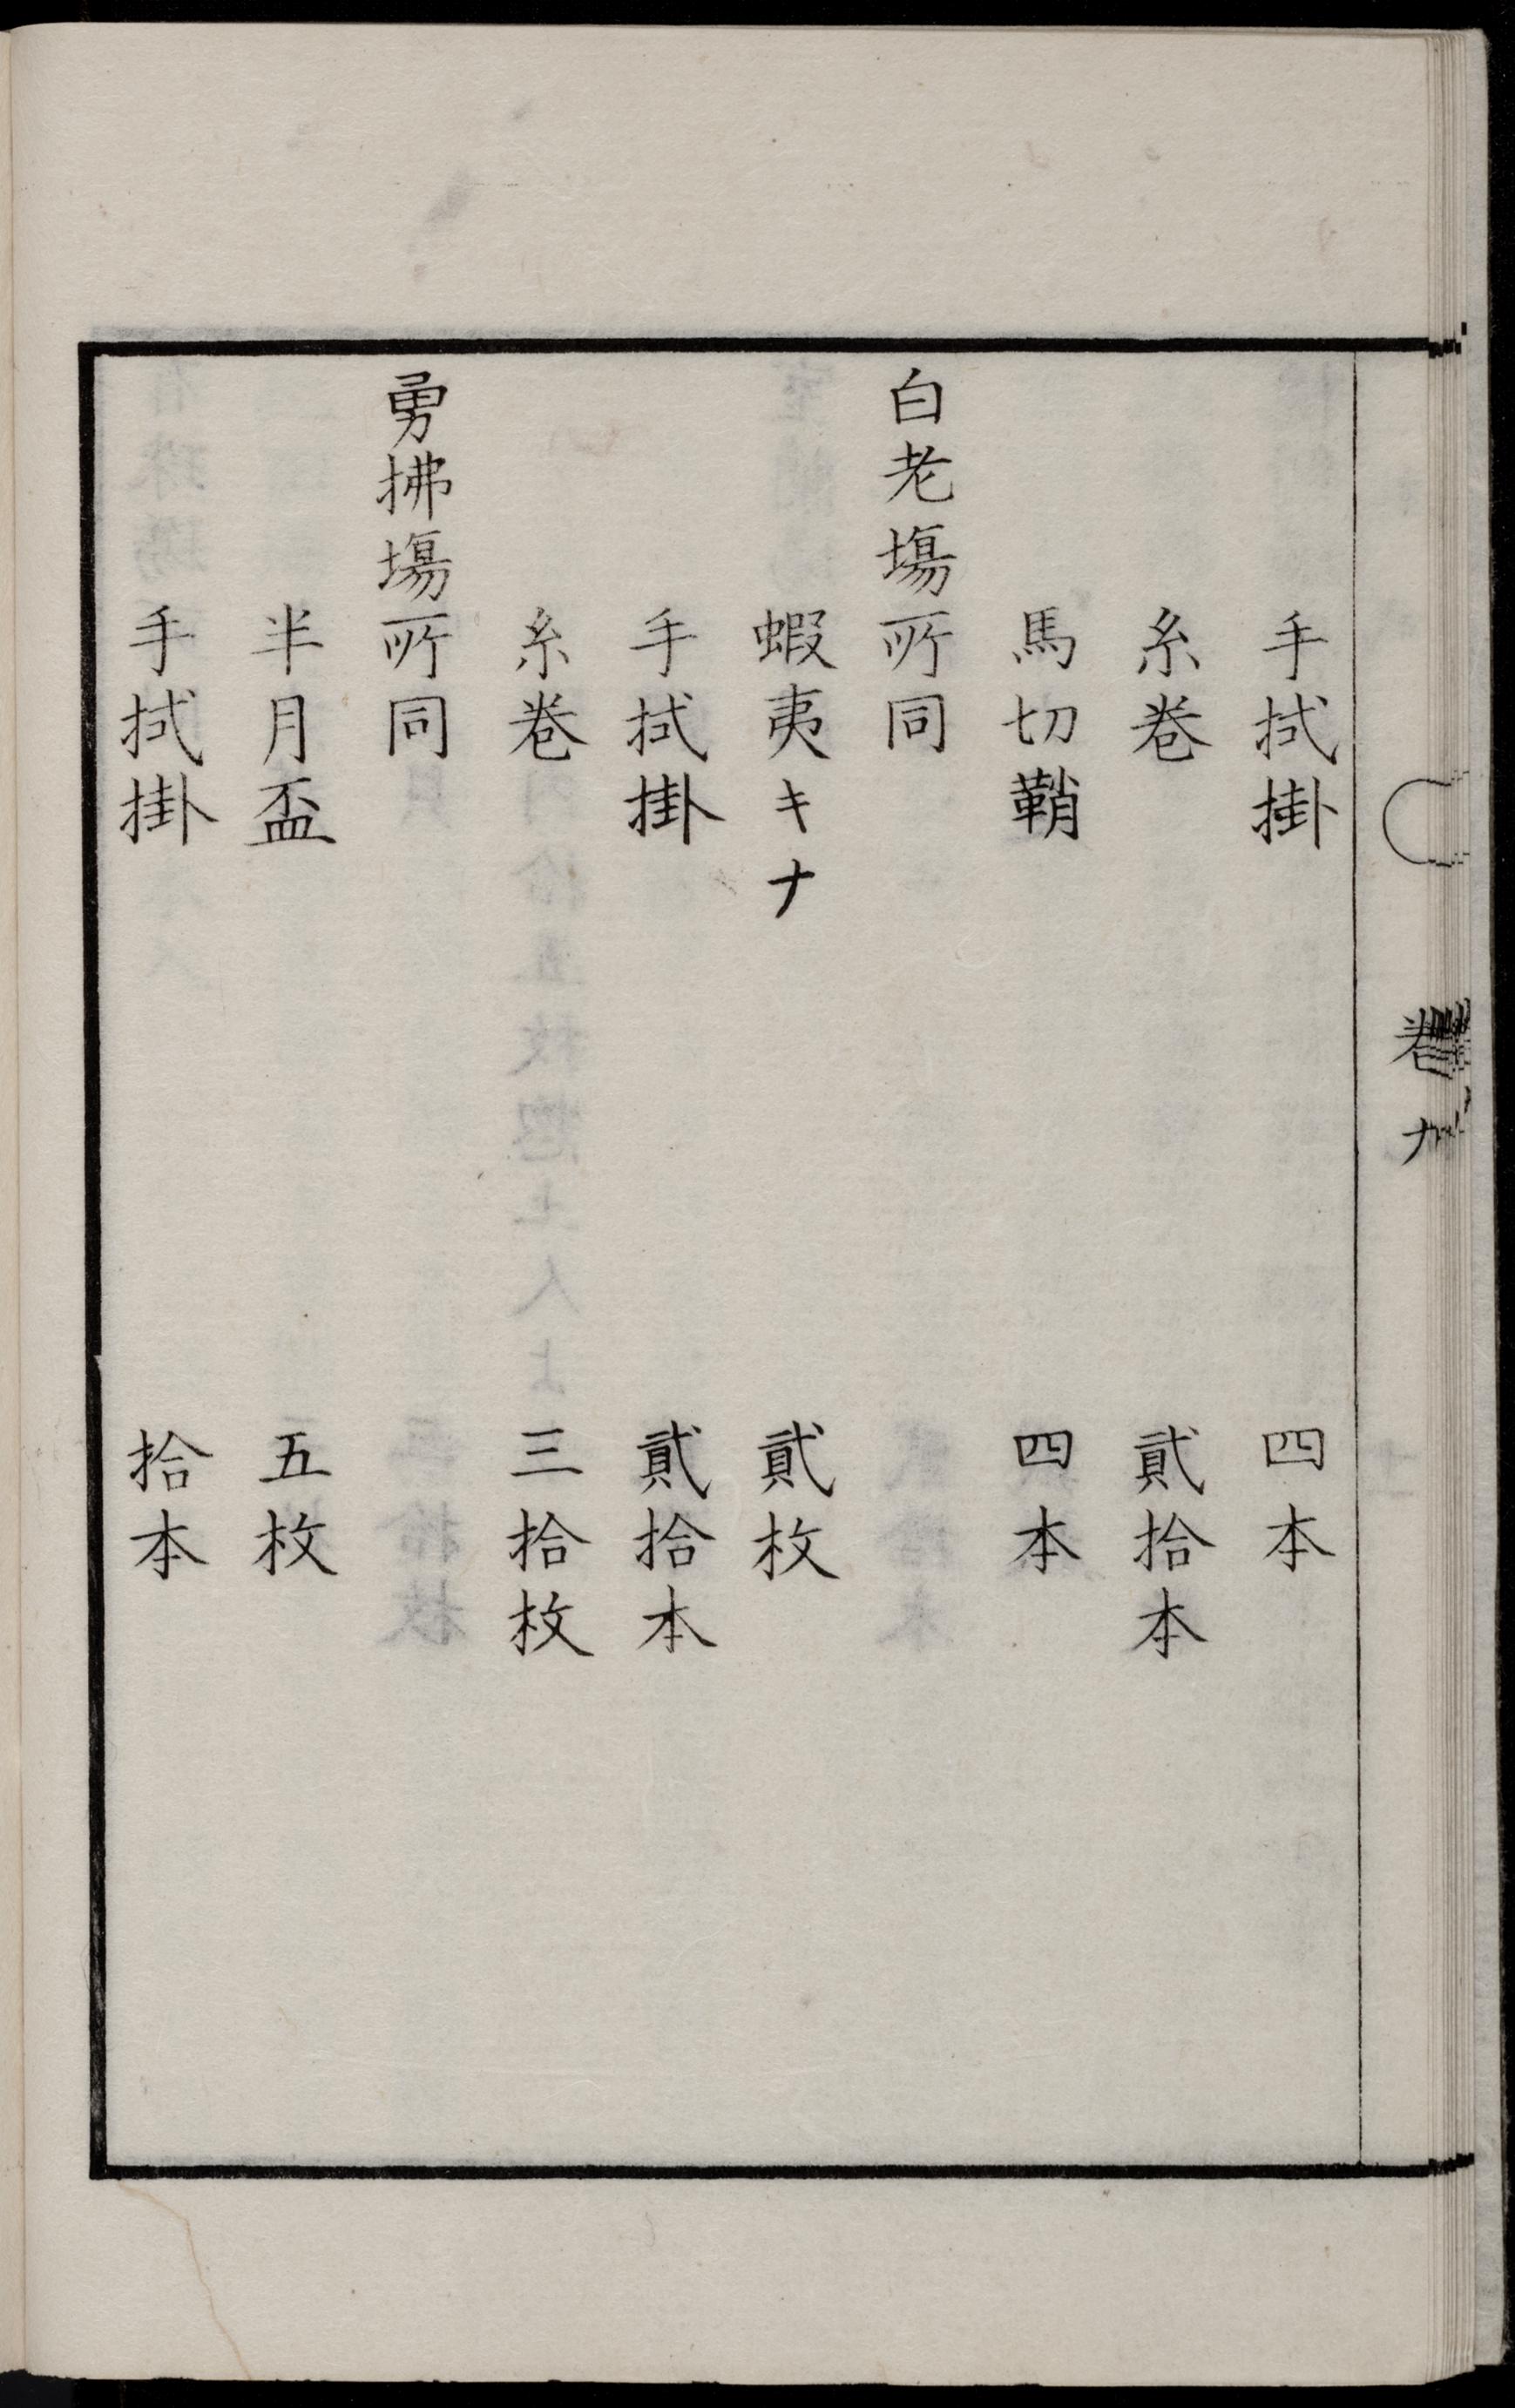 手拭掛　四本
糸巻　貳拾本
馬切鞘　四本
白老塲所同
蝦夷キナ　貳枚
手拭掛　貳拾本
糸巻　三拾枚
勇拂塲所同
半月盃　五枚
手拭掛　拾本